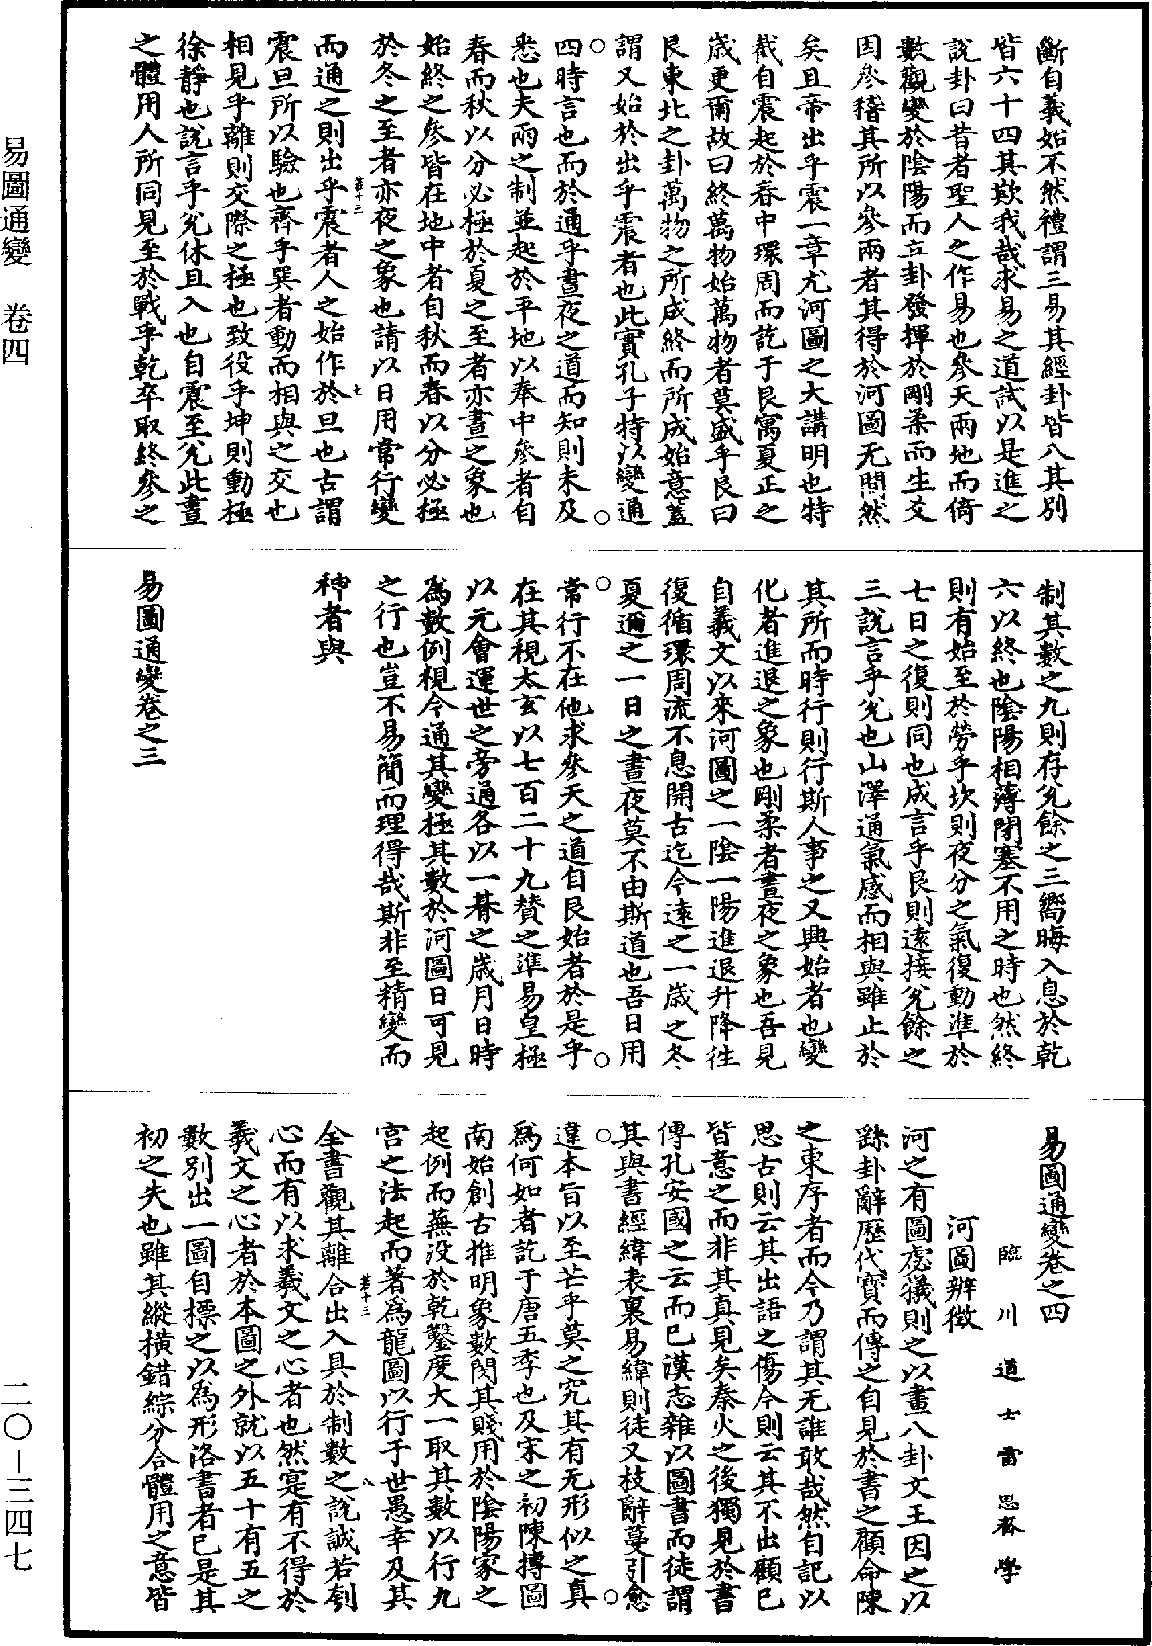 易圖通變　卷四
二〇—三四七
斷自羲始不然禮謂三易其經卦皆八其別
皆六十四其欺我哉求易之道試以是進之
說卦曰昔者聖人之作易也參天兩地而倚
數觀變於陰陽而立卦發揮於剛柔而生爻
因參稽其所以參兩者其得於河圖无間然
矣且帝出乎震一章尤河圖之大講明也特
截自震起於春中環周而訖于艮寓夏正之
歲更爾故曰終萬物始萬物者莫盛乎艮曰
艮東北之卦萬物之所成終而所成始意蓋
謂又始於出乎震者也此實孔子特以變通
四時言也而於通乎晝夜之道而知則未及
悉也夫兩之制並起於平地以奉中參者自
春而秋以分必極於夏之至者亦晝之象也
始終之參皆在地中者自秋而春以分必極
於冬之至者亦夜之象也請以日用常行變
而通之則出乎震者人之始作於旦也古謂
震旦所以驗也齊乎巽者動而相與之交也
相見乎離則交際之極也致役乎坤則動極
徐靜也說言乎兌休且入也自震至兌此晝
之體用人所同見至於戰乎乾卒取終參之
制其數之九則存兌餘之三嚮晦入息於乾
六以終也陰陽相薄閉塞不用之時也然終
則有始至於勞乎坎則夜分之氣復動準於
七日之復則同也成言乎艮則遠接兌餘之
三說言乎兌也山澤通氣感而相與雖止於
其所而時行則行斯人事之又興始者也變
化者進退之象也剛柔者晝夜之象也吾見
自羲文以來河圖之一陰一陽進退升降往
復循環周流不息開古迄今遠之一歲之冬
夏邇之一日之晝夜莫不由斯道也吾日用
常行不在他求參天之道自艮始者於是乎
在其視太玄以七百二十九贊之準易皇極
以元會運世之旁通各以一朞之歲月日時
為數例視今通其變極其數於河圖日可見
之行也豈不易簡而理得哉斯非至精變而
神者與
易圖通變卷之三
易圖通變卷之四
臨川道士雷思齊學
河圖辨徵
河之有圖虙犧則之以畫八卦文王因之以
繇卦辭歷代寶而傳之自見於書之顧命陳
之東序者而今乃謂其无誰敢哉然自記以
思古則云其出語之傷今則云其不出顧已
皆意之而非其真見矣秦火之後獨見於書
傳孔安國之云而已漢志雜以圖書而徒謂
其與書經緯表裏易緯則徒又枝辭蔓引愈
違本旨以至芒乎莫之究其有无形似之真
為何如者訖于唐五季也及宋之初陳摶圖
南始創古推明象數閔其賤用於陰陽家之
起例而蕪沒於乾鑿度大一取其數以行九
宮之法起而著為龍圖以行于世愚幸及其
全書觀其離合出入具於制數之說誠若刳
心而有以求羲文之心者也然寔有不得於
羲文之心者於本圖之外就以五十有五之
數別出一圖自標之以為形洛書者已是其
初之失也雖其縱橫錯綜分合體用之意皆